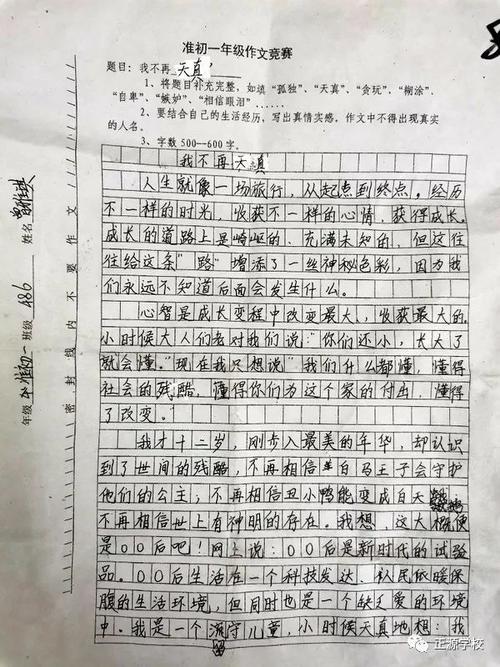 准初一年级作文竞赛
题目：我不再天真
1、将题目补充完整，如填“孤独”、“天真”、“贪玩”、“糊涂”、
“自卑”、“嫉妒”、“相信眼泪”……
2、要结合自己的生活经历，写出真情实感，作文中不得出现真实
的人名。
3、字数 500--600 字。
我不再天真
人生就像一场旅行，从起点到终点。经历
不一样的时光，收获不一样的心情，获得成长。
成长的道路上是崎岖的、充满未知的，但这往
往给这条“路”增添了一丝神秘色彩，因为我
们永远不知道后面会发生什么。
心智是成长变程中改变最大、收获最大的。
小时候大人们老对我们说：“你们还小，长大了
就会懂。”现在我只想说“我们什么都懂，懂得
社会的残酷，懂得你们为这个家的付出，懂得
了改变。”
我才十二岁，刚步入最美的年华，却认识
到了世间的残酷，不再相信白马王子会守护
他们的公主；不再相信丑小鸭能变成白天
不再相信世上有神明的存在。我想，这大概便
是00后吧！网上说：00后是新时代的试验
品。00后生活在一个科技发达、人民依暖保
腹的生活环境，但同时也是一个缺乏爱的环境
中。我是一个流守儿童，小时候天真地想：我
留
年级 准初一 班级 486 姓名
密封线内不要作文
正源学校